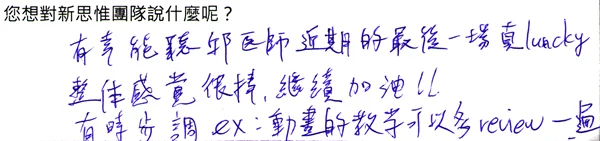 您想對新思惟團隊說什麼呢？
有幸能聽邱医師近期的最後一場真luncky
整体感覺很棒，繼續加油!!
有時步調 ex：動畫的教学可以多review一遍